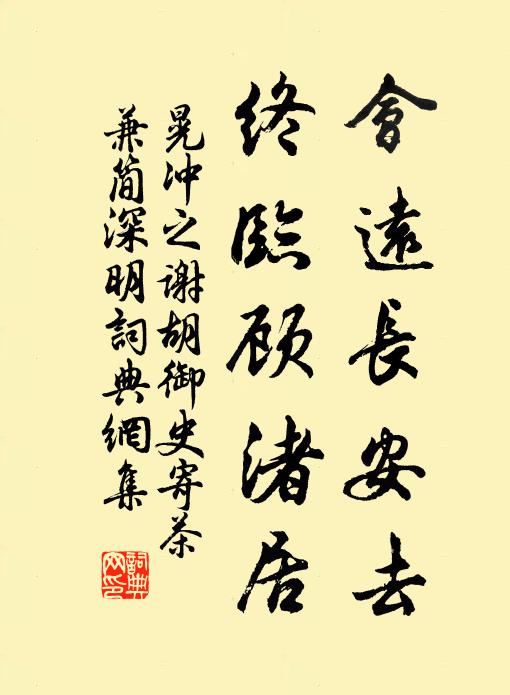 會遠長安去
終臨顾渚居
晃沖之谢胡御史寄茶
兼简深明詞典網集
詞典
网印